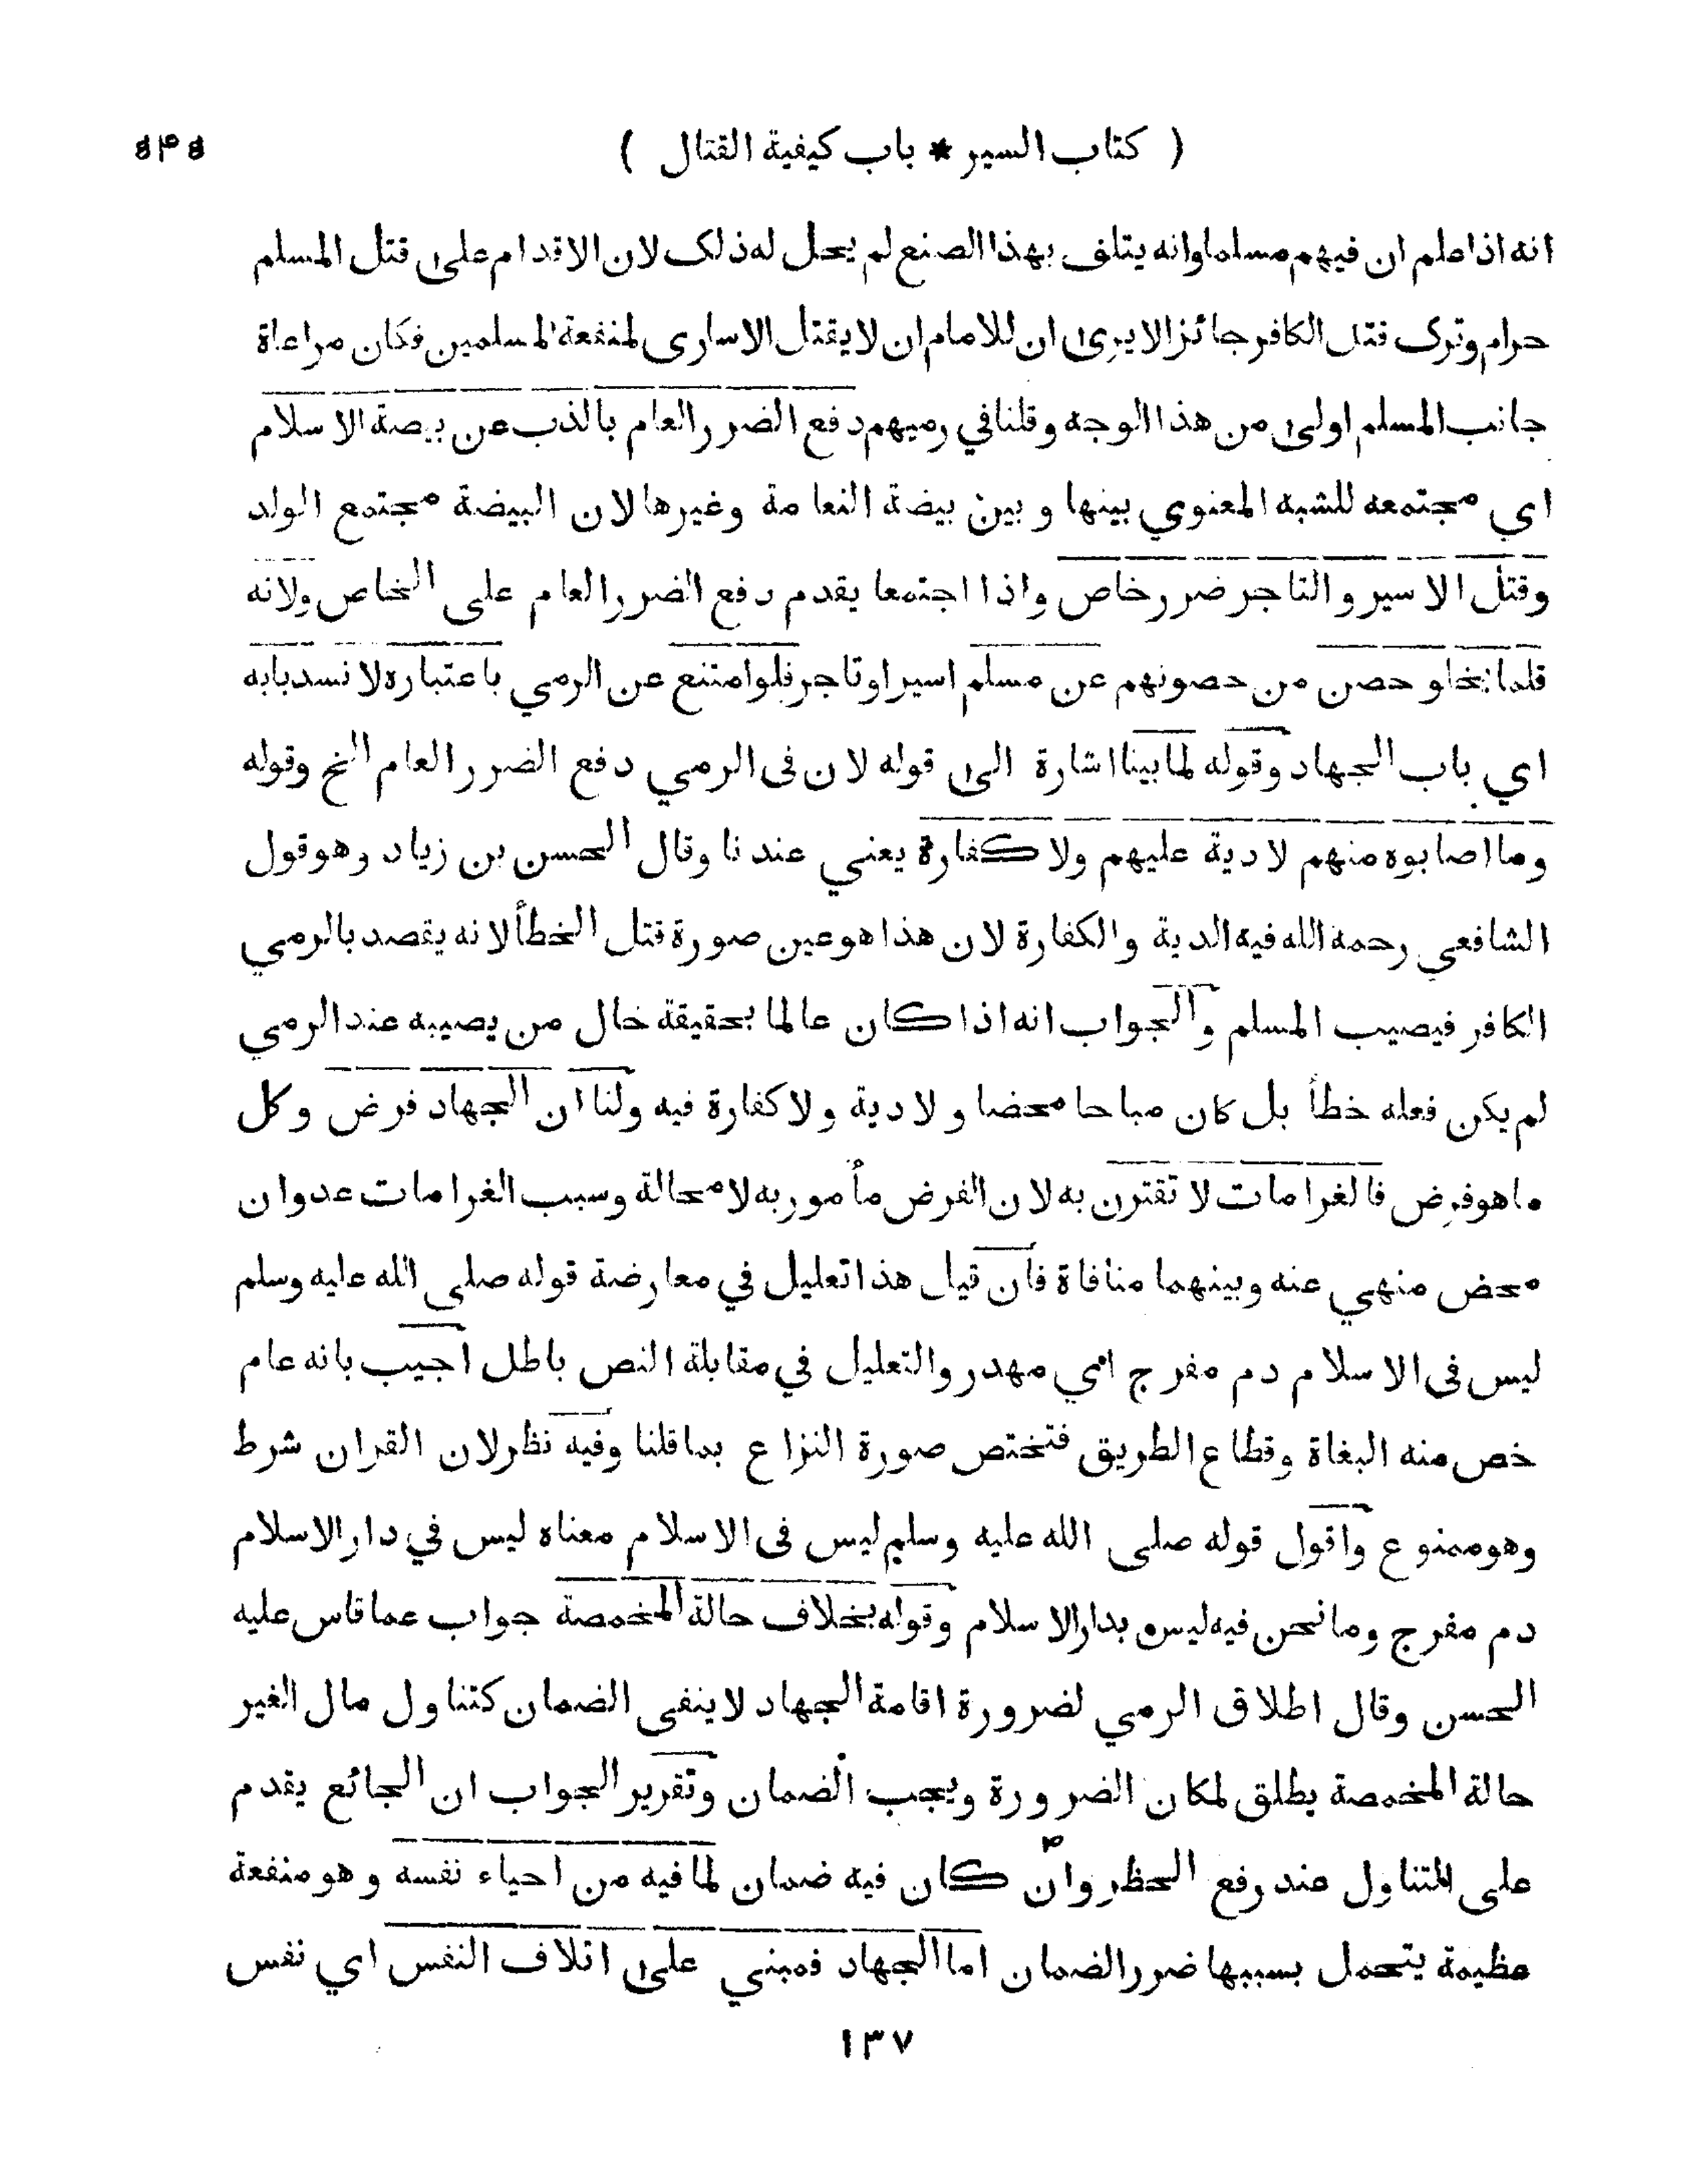 ( كتاب السير * باب كيفية القتال ) ٥٤٥
انه اذا علم ان فيهم مسلما وانه يتلف بهذا الصنع لم يحل له ذلك لان الاقدام على قتل المسلم
حرام وترك قتل الكافر جائز الا يرى ان للامام ان لا يقتل الاسارى لمنفعة المسلمين فكان مراعاة
جانب المسلم اولى من هذا الوجه وقلنا في رميهم دفع الضرر العام بالذب عن بيضة الاسلام
اي مجتمعه للشبه المعنوي بينها و بين بيضة النعامة وغيرها لان البيضة مجتمع الولد
وقتل الاسير والتاجر ضرر خاص واذا اجتمعا يقدم دفع الضرر العام على الخاص ولانه
قلما يخلو حصن من حصونهم عن مسلم اسير او تاجر فلو امتنع عن الرمي باعتباره لا نسد بابه
اي باب الجهاد وقوله لما بينا اشارة الى قوله لان فى الرمي دفع الضرر العام الخ وقوله
وما اصابوه منهم لا دية عليهم ولا كفارة يعني عندنا وقال الحسن بن زياد وهو قول
الشافعي رحمه الله فيه الدية والكفارة لان هذا هو عين صورة قتل الخطأ لانه يقصد بالرمي
الكافر فيصيب المسلم والجواب انه اذا كان عالما بحقيقة حال من يصيبه عند الرمي
لم يكن فعله خطأ بل كان مباحا محضا و لا دية و لا كفارة فيه ولنا ان الجهاد فرض وكل
ما هو فرض فالغرامات لا تقترن به لان الفرض مأمور به لا محالة وسبب الغرامات عدوان
محض منهي عنه وبينهما منافاة فان قيل هذا تعليل في معارضة قوله صلى الله عليه وسلم
ليس فى الاسلام دم مفرج اي مهدر والتعليل في مقابلة النص باطل اجيب بانه عام
خص منه البغاة وقطاع الطريق فتختص صورة النزاع بما قلنا وفيه نظر لان القران شرط
وهو ممنوع واقول قوله صلى الله عليه وسلم ليس فى الاسلام معناه ليس في دار الاسلام
دم مفرج وما نحن فيه ليس بدار الاسلام وقوله بخلاف حالة المخمصة جواب عما قاس عليه
الحسن وقال اطلاق الرمي لضرورة اقامة الجهاد لا ينفى الضمان كتناول مال الغير
حالة المخمصة يطلق لمكان الضرورة ويجب الضمان وتقرير الجواب ان الجائع يقدم
على التناول عند رفع الحظر وان كان فيه ضمان لما فيه من احياء نفسه وهو منفعة
عظيمة يتحمل بسببها ضرر الضمان اما الجهاد فمبني على اتلاف النفس اي نفس
١٣٧